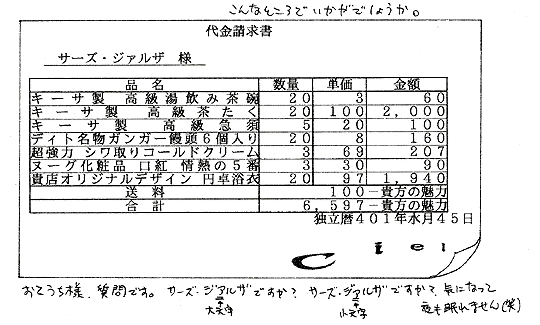 こんなところでいかがでしょうか。
代金請求書
サーズ・ジァルザ 様
品 名 数量 単価 金額
キーサ製 高級湯飲み茶碗 20 3 60
キーサ製 高級茶たく 20 100 2,000
キーサ製 高級急須 5 20 100
ディト名物ガンガー饅頭6個入り 20 8 160
超強力 シワ取りコールドクリーム 3 69 207
ヌーグ化粧品 口紅 情熱の5番 3 30 90
貴店オリジナルデザイン 円卓浴衣 20 97 1,940
送 料 100-貴方の魅力
合 計 6,597-貴方の魅力
独立暦401年水月45日
Ciel
おとうち様、質問です。サーズ・ジアルザですか?サーズ・ジァルザですか?気になって
大文字 小文字 夜も眠れません(笑)